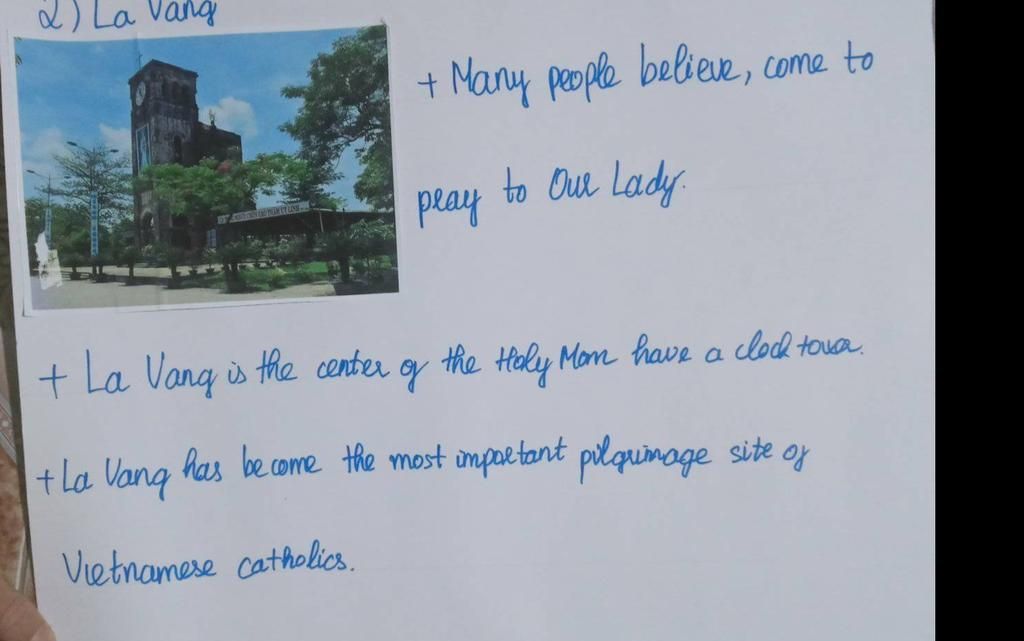 2) La Vang
+ Many people believe, come to
pray to Our Lady.
+ La Vang is the center of the Holy Mom have a clock tower.
+ La Vang has become the most important pilgrimage site of
Vietnamese catholics.